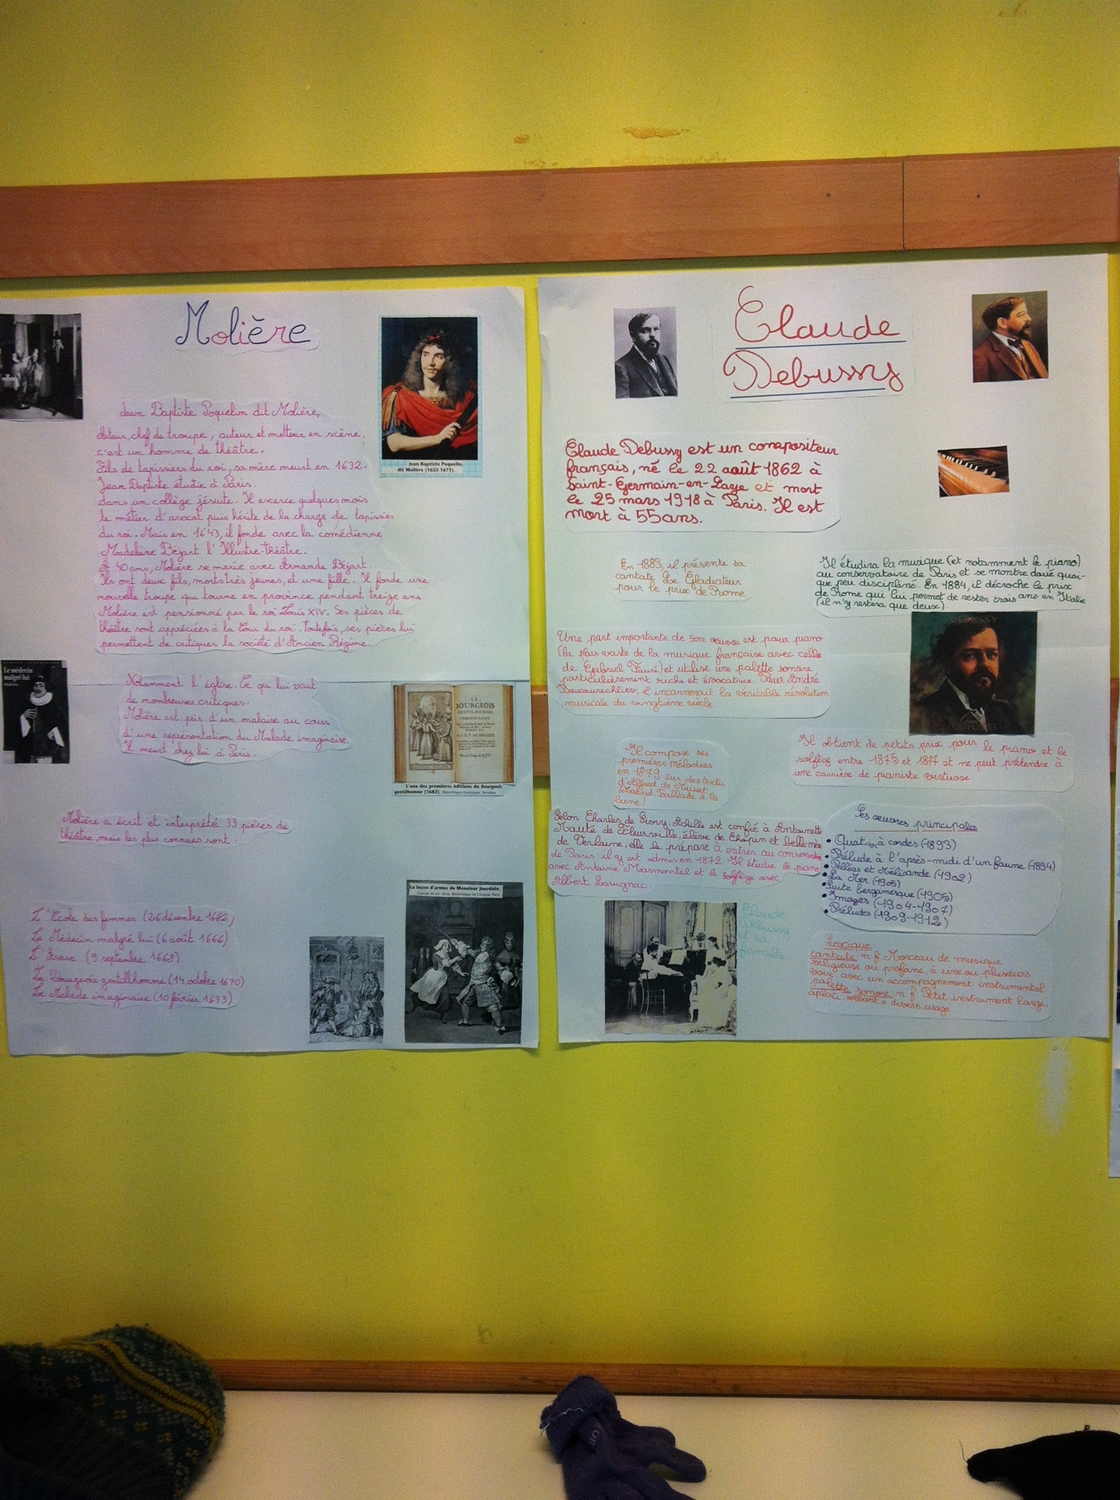 Molière
Jean Baptiste Poquelin dit Molière,
Acteur, chef de troupe, auteur et metteur en scène,
c'est un homme de théâtre.
Fils de tapissiers du roi, sa mère meurt en 1632.
Jean Baptiste étudie à Paris.
dans un collège jésuite. Il exerce quelques mois
le métier d'avocat puis hérite de la charge de tapissier
du roi. Mais en 1643, il fonde avec la comédienne
Madeleine Béjart l'Illustre-théâtre.
A 40 ans, Molière se marie avec Armande Béjart.
Ils ont deux fils, morts très jeunes, et une fille. Il fonde une
nouvelle troupe qui tourne en province pendant treize ans
Molière est pensionné par le roi Louis XIV. Ses pièces de
théâtre sont appréciées à la Cour du roi. Toutefois, ses pièces lui
permettent de critiquer la société d'Ancien Régime.
Jean-Baptiste Poquelin,
dit Molière (1622-1673).
Le médecin
malgré lui
Notamment l'église. Ce qui lui vaut
de nombreuses critiques.
Molière est pris d'un malaise au cours
d'une représentation du Malade imaginaire.
Il meurt chez lui à Paris.
LE
BOURGEOIS
GENTILHOMME,
L'une des premières éditions du Bourgeois
gentilhomme (1682).
Molière a écrit et interprété 33 pièces de
théâtre, mais les plus connues sont :
L'Ecole des femmes (26 décembre 1662)
Le Médecin malgré lui (6 août 1666)
L'Avare (9 septembre 1668)
Le Bourgeois gentilhomme (14 octobre 1670)
Le Malade imaginaire (10 février 1673)
La leçon d'armes de Monsieur Jourdain.
Claude
Debussy
Claude Debussy est un compositeur
français, né le 22 août 1862 à
Saint-Germain-en-Laye et mort
le 25 mars 1918 à Paris. Il est
mort à 55 ans.
En 1883 il présente sa
cantate Le Gladiateur
pour le prix de Rome
Il étudira la musique (et notamment le piano)
au conservatoire de Paris et se montre doué quoi-
que peu discipliné. En 1884, il décroche le prix
de Rome qui lui permet de rester trois ans en Italie
(il n'y restera que deux)
Une part importante de son oeuvre est pour piano
(la plus vaste de la musique française avec celle
de Gabriel Fauré) et utilise une palette sonore
particulièrement riche et évocatrice. Pour André
Boucourechliev, il incarnait la véritable révolution
musicale du vingtième siècle
Il obtient de petits prix pour le piano et le
solfège entre 1875 et 1877 et ne peut prétendre à
une carrière de pianiste virtuose
Il compose ses
premières mélodies
en 1879 sur des textes
d'Alfred de Musset
Ballade à la
lune)
Selon Charles de Sivry, Achille est confié à Antoinette
Mauté de Fleurville, élève de Chopin et belle-mère
de Verlaine, elle le prépare à entrer au conservatoire
de Paris il y est admis en 1872. Il étudie le piano
avec Antoine Marmontel et le solfège avec
Albert Lavignac
Ses oeuvres principales
• Quatuor à cordes (1893)
• Prélude à l'après-midi d'un faune (1894)
• Pelléas et Mélisande (1902)
• La Mer (1905)
• Suite bergamasque (1905)
• Images (1904-1907)
• Préludes (1909-1912)
Claude
Debussy
et sa
famille
Lexique
cantate n.f Morceau de musique
religieuse ou profane, à une ou plusieurs
voix avec un accompagnement instrumental
palette sonore n.f. Petit instrument large
aplati servant à divers usage